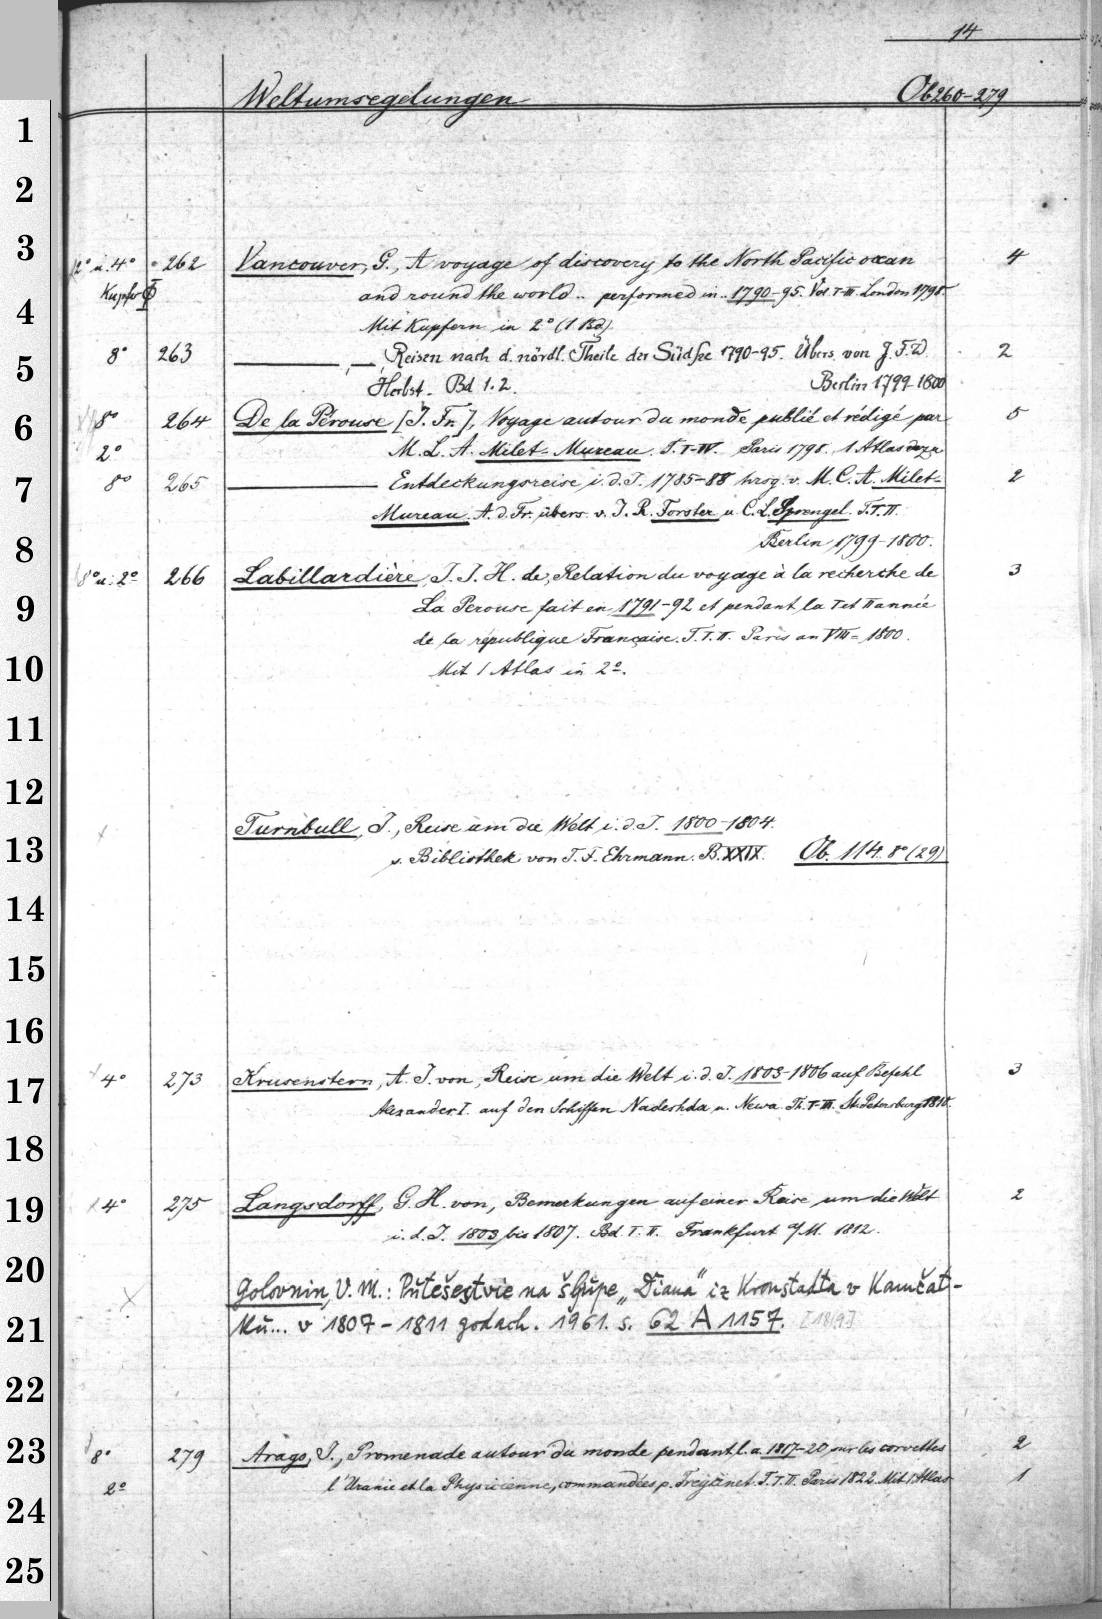 14
Weltumsegelungen Ob 260-279
1
2
3
2° u. 4° 262 Vancouver, G., A voyage of discovery to the North Pacific ocean 4
Kupfer and round the world .. performed in .. 1790-95. Vol. I-III. London 1798.
4
Mit Kupfern in 2° (1 Bd).
5
8° 263 ———, —, Reisen nach d. nördl. Theile der Südsee 1790-95. Übers. von J. F. W. 2
Herbst. Bd 1.2. Berlin 1799-1800
6
8° 264 De la Pérouse [J. Fr.], Voyage autour du monde publié et rédigé par 5
2° M. L. A. Milet-Mureau. T. I-IV. Paris 1798. 1 Atlas dazu
7
8° 265 ——— Entdeckungsreise i. d. J. 1785-88 hrsg. v. M. L. A. Milet- 2
Mureau. A. d. Fr. übers. v. J. R. Forster u. C. L. Sprengel. T. I. II.
8
Berlin 1799-1800.
8° u. 2° 266 Labillardière, J. J. H. de, Relation du voyage à la recherche de 3
9
La Perouse fait en 1791-92 et pendant la I et II année
de la république Française. T. I. II. Paris an VIII = 1800.
10
Mit 1 Atlas in 2°.
11
12
Turnbull, J., Reise um die Welt i. d. J. 1800-1804.
13
s. Bibliothek von T. F. Ehrmann. B. XXIX. Ob. 114. 8° (29)
14
15
16
17
4° 273 Krusenstern, A. J. von, Reise um die Welt i. d. J. 1803-1806 auf Befehl 3
Alexander I. auf den Schiffen Nadeshda u. Newa. Th. I-III. St. Petersburg 1810.
18
19
4° 275 Langsdorff, G. H. von, Bemerkungen auf einer Reise um die Welt 2
i. d. J. 1803 bis 1807. Bd. I. II. Frankfurt a/M. 1812.
20
Golovnin, V. M.: Putešestvie na šljupe „Diana" iz Kronštadta v Kamčat-
21
ku... v 1807-1811 godach. 1961. s. 62 A 1157. [1819]
22
23
8° 279 Arago, J., Promenade autour du monde pendant l. a. 1817-20 sur les corvettes 2
2° l'Uranie et la Physicienne, commandées p. Freycinet. T. I. II. Paris 1822. Mit 1 Atlas 1
24
25